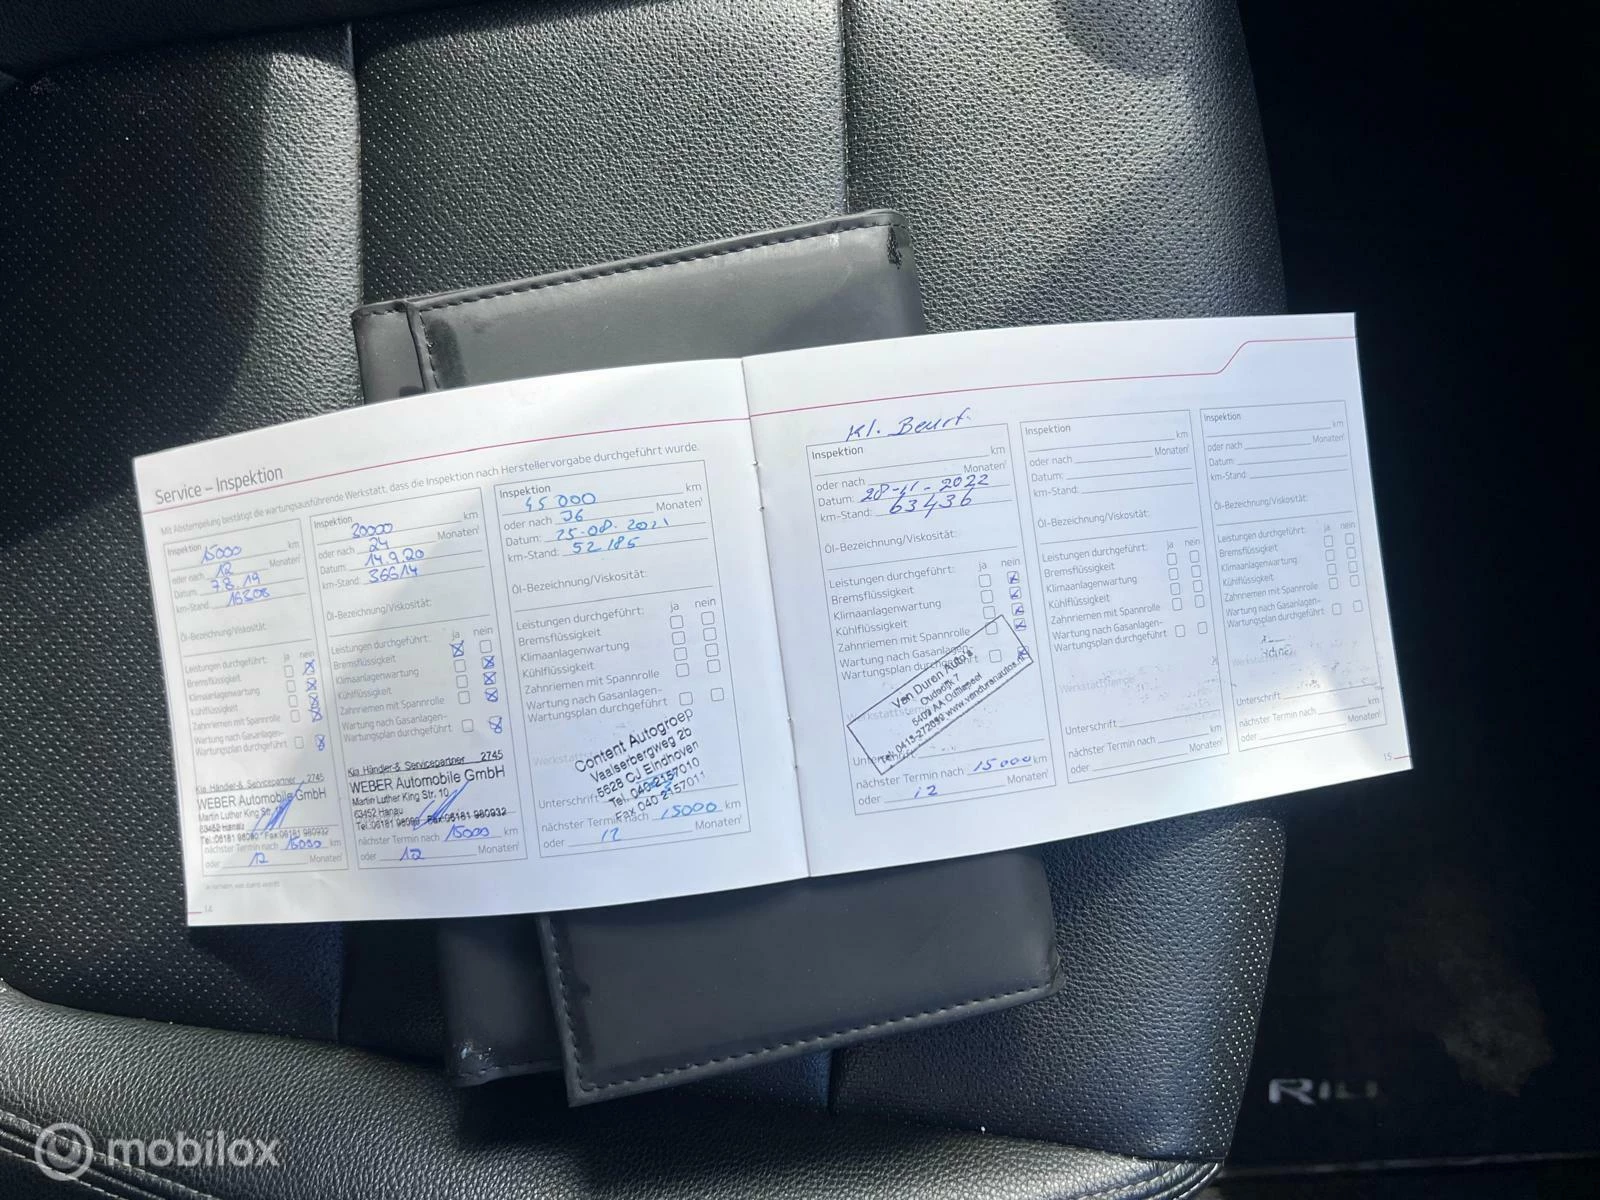 Service – Inspektion
Mit Abstempelung bestätigt die wartungsausführende Werkstatt, dass die Inspektion nach Herstellervorgabe durchgeführt wurde.
Inspektion
15000 km
oder nach 12 Monaten¹
Datum: 7.8.19
km-Stand: 16308
Öl-Bezeichnung/Viskosität:
Leistungen durchgeführt: ja nein
Bremsflüssigkeit
Klimaanlagenwartung
Kühlflüssigkeit
Zahnriemen mit Spannrolle
Wartung nach Gasanlagen-
Wartungsplan durchgeführt
Kia Händler-& Servicepartner 2745
WEBER Automobile GmbH
Martin Luther King Str. 10
63452 Hanau
Tel.:06181 98090 Fax:06181 980932
nächster Termin nach 15000 km
oder 12 Monaten¹
14
Inspektion
30000 km
oder nach 24 Monaten¹
Datum: 14.9.20
km-Stand: 36614
Öl-Bezeichnung/Viskosität:
Leistungen durchgeführt: ja nein
Bremsflüssigkeit
Klimaanlagenwartung
Kühlflüssigkeit
Zahnriemen mit Spannrolle
Wartung nach Gasanlagen-
Wartungsplan durchgeführt
Kia Händler-& Servicepartner 2745
WEBER Automobile GmbH
Martin Luther King Str. 10
63452 Hanau
Tel.:06181 98090 Fax:06181 980932
nächster Termin nach 15000 km
oder 12 Monaten¹
Inspektion
45000 km
oder nach 36 Monaten¹
Datum: 25-08-2021
km-Stand: 52185
Öl-Bezeichnung/Viskosität:
Leistungen durchgeführt: ja nein
Bremsflüssigkeit
Klimaanlagenwartung
Kühlflüssigkeit
Zahnriemen mit Spannrolle
Wartung nach Gasanlagen-
Wartungsplan durchgeführt
Content Autogroep
Vaalserbergweg 2b
5628 CJ Eindhoven
Tel. 040 2157010
Fax 040 2157011
Unterschrift
nächster Termin nach 15000 km
oder 12 Monaten¹
Kl. Beurt.
Inspektion
km
oder nach Monaten¹
Datum: 28-11-2022
km-Stand: 63436
Öl-Bezeichnung/Viskosität:
Leistungen durchgeführt: ja nein
Bremsflüssigkeit
Klimaanlagenwartung
Kühlflüssigkeit
Zahnriemen mit Spannrolle
Wartung nach Gasanlagen-
Wartungsplan durchgeführt
Van Duren Auto's
Oudedijk 7
5409 AA Odiliapeel
Tel: 0413-272090 www.vandurenautos.nl
nächster Termin nach 15000 km
oder 12 Monaten¹
Inspektion
km
oder nach Monaten¹
Datum:
km-Stand:
Öl-Bezeichnung/Viskosität:
Leistungen durchgeführt: ja nein
Bremsflüssigkeit
Klimaanlagenwartung
Kühlflüssigkeit
Zahnriemen mit Spannrolle
Wartung nach Gasanlagen-
Wartungsplan durchgeführt
Werkstattstempel
Unterschrift
nächster Termin nach km
oder Monaten¹
Inspektion
km
oder nach Monaten¹
Datum:
km-Stand:
Öl-Bezeichnung/Viskosität:
Leistungen durchgeführt: ja nein
Bremsflüssigkeit
Klimaanlagenwartung
Kühlflüssigkeit
Zahnriemen mit Spannrolle
Wartung nach Gasanlagen-
Wartungsplan durchgeführt
Unterschrift
nächster Termin nach km
oder Monaten¹
15
mobilox